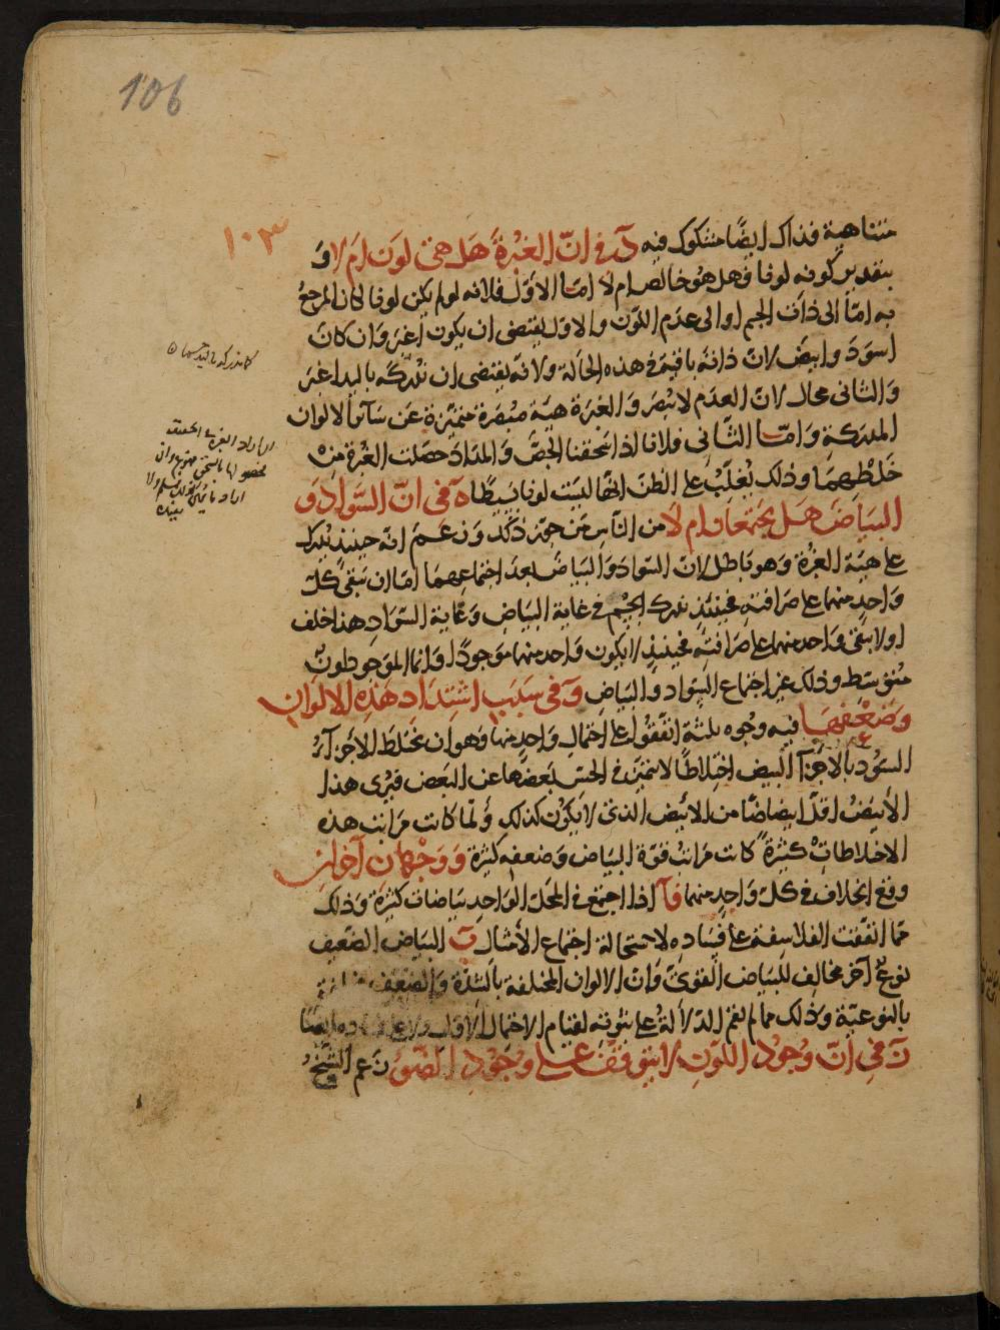 106
١٠٣
متناهية فذاك ايضًا مشكوك فيه د في انّ الغبْرةَ هَل هي لون ام لا وَ
بتقدير كونه لونا فهل هُو خالص ام لا امّا الاوّل فلانه لو لم يكن لونا لكان المرجعُ
به امّا الى ذات الجسم او الى عدم اللّون والاوّل يقتضى ان يكون اغبر وان كان
اسوَدَ وابيضَ لانّ ذاته باقية في هذه الحالة ولانّه يقتضى ان نُدركه باليد اغبَر
وَالثانى محال لانّ العدَم لا يبصَر وَالغبَرة هيَة مُبْصَرة متميّزة عَن سَائر الالوان
المدركةِ وَامّا الثّانِى فلانا اذا سَحقنا الجصّ وَالمدَادَ حصَلت الغبْرة مِن
خَلطهِمَا وذلك يُغلِّبُ على الظن انّها ليسَت لونا بَسِيطًا ه في انّ السّوادَ وَ
البيَاضَ هَل يجتمعَان ام لَا من النّاسِ مَن جوّز ذلك وَزعَمَ انّه حينئذٍ يُدرك
على هيَة الغبْرة وَهو بَاطل لانّ السّوادَ وَالبيَاضَ بعدَ اجتماعِهمَا امّا ان يَبقى كلّ
وَاحدٍ منهما على صَرافتهِ فحينئذٍ ندرك الجسْم في غاية البيَاضِ وَغَاية السّوَادِ هذا خلف
او لا يبقى وَاحد منهما على صَرَافتهِ فحينئذٍ لا يكون وَاحد منهما موجودًا وَانما الموجود لونٌ
متوَسّط وذلك غير اجتماع السّواد وَالبيَاض و في سَبَبِ اشتِدَاد هَذِه الالوانِ
وَضَعْفِهَا فيه وجُوه ثلثة اتفقُوا على احتمالِ وَاحدٍ منها وَهو ان يختلَط الاجزآءُ
السُّود بالاجزآء البيض اختِلاطًا لا يتميّز في الحسّ بعضُها عَن البَعض فيُرى هذا
الأبيَضُ اقلّ ابيضاضًا من الابيَض الذى لا يكون كذلك وَلمّا كانت مرَاتب هذه
الاختلاطاتِ كثيرةً كانت مرَاتبُ قوّة البيَاض وَضعفهِ كثيرة وَوَجْهَان آخرَانِ
وقع الخلاف في كلّ وَاحدٍ منهما فآ اذا اجتمع في المحلّ الوَاحدِ بيَاضات كثيرَة وَذلك
ممّا اتفقت الفلاسِفة على فسَادهِ لاستحالة اجتماع الأمثال بَ البيَاض الضّعيف
نوعٌ آخر مخالِف للبيَاض القوىّ وَانّ الالوان المختلفة بالشدّة وَالضعف
بالنوعيّة وَذلك مما لم يقم الدّلالةُ على ثبوته لقيام الاحتمال الاوّل وَلا على ايضًا
زَ في انّ وجُودَ اللّونِ لا يتوقفُ على وجُودِ الضّوْءِ زعم الشّيخُ